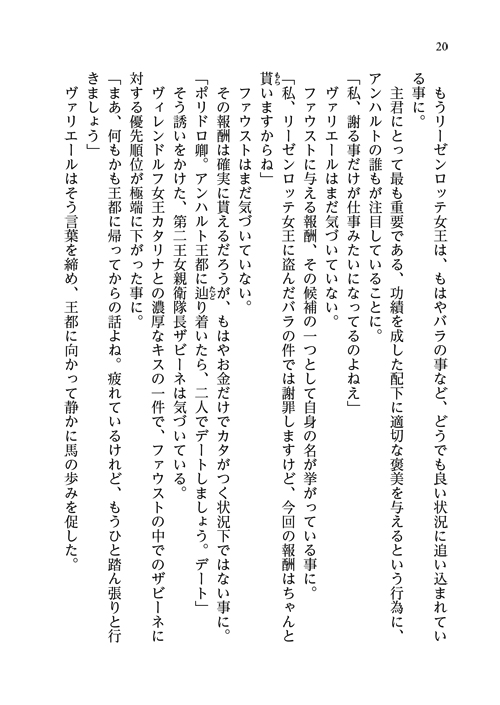 20
もうリーゼンロッテ女王は、もはやバラの事など、どうでも良い状況に追い込まれてい
る事に。
主君にとって最も重要である、功績を成した配下に適切な褒美を与えるという行為に、
アンハルトの誰もが注目していることに。
「私、謝る事だけが仕事みたいになってるのよねえ」
ヴァリエールはまだ気づいていない。
ファウストに与える報酬、その候補の一つとして自身の名が挙がっている事に。
「私、リーゼンロッテ女王に盗んだバラの件では謝罪しますけど、今回の報酬はちゃんと
貰いますからね」
ファウストはまだ気づいていない。
その報酬は確実に貰えるだろうが、もはやお金だけでカタがつく状況下ではない事に。
「ポリドロ卿。アンハルト王都に辿り着いたら、二人でデートしましょう。デート」
そう誘いをかけた、第二王女親衛隊長ザビーネは気づいている。
ヴィレンドルフ女王カタリナとの濃厚なキスの一件で、ファウストの中でのザビーネに
対する優先順位が極端に下がった事に。
「まあ、何もかも王都に帰ってからの話よね。疲れているけれど、もうひと踏ん張りと行
きましょう」
ヴァリエールはそう言葉を締め、王都に向かって静かに馬の歩みを促した。